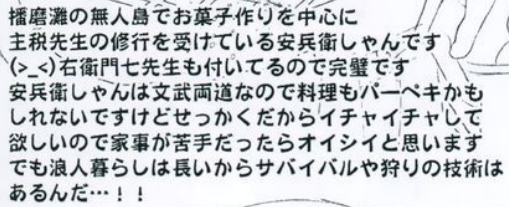 播磨灘の無人島でお菓子作りを中心に
主税先生の修行を受けている安兵衛しゃんです
(>_<)右衛門七先生も付いてるので完璧です
安兵衛しゃんは文武両道なので料理もパーペキかも
しれないですけどせっかくだからイチャイチャして
欲しいので家事が苦手だったらオイシイと思います
でも浪人暮らしは長いからサバイバルや狩りの技術は
あるんだ…！！